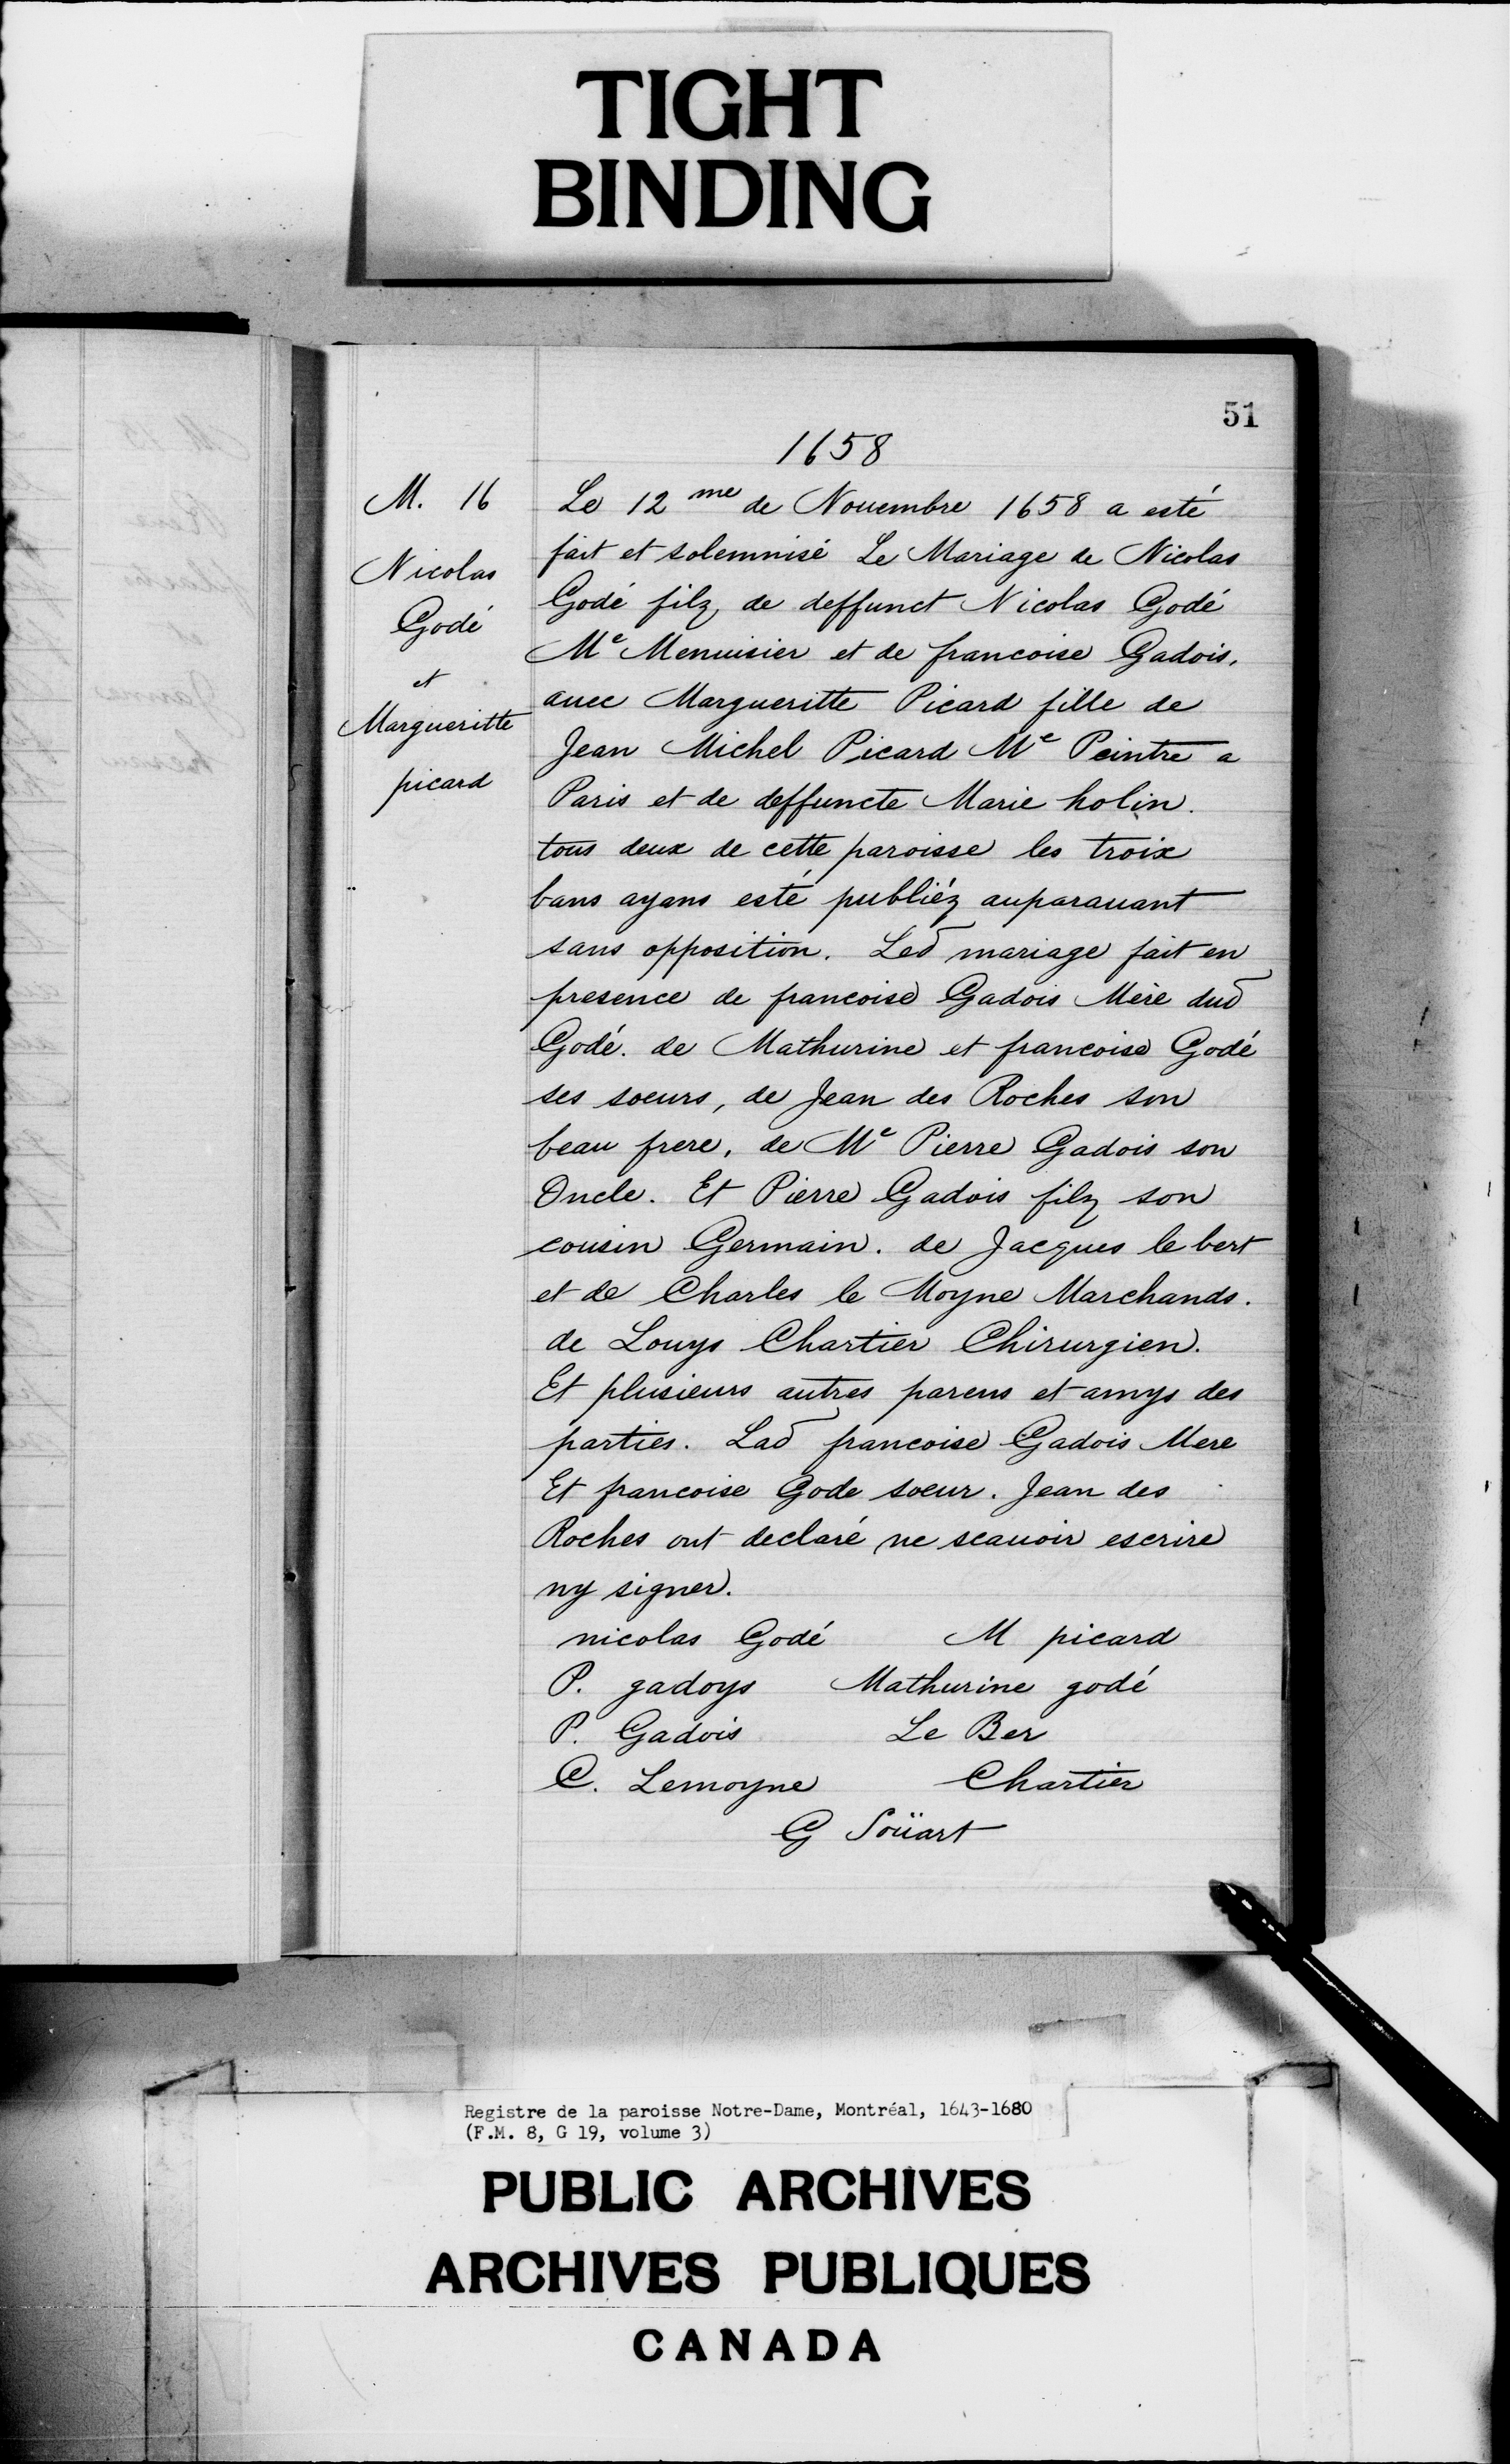 TIGHT
BINDING
51
1658
M. 16
Nicolas
Godé
et
Margueritte
picard
Le 12 me de Nouembre 1658 a esté
fait et solemnisé Le Mariage de Nicolas
Godé filz de deffunct Nicolas Godé
Me Menuisier et de francoise Gadois,
auec Margueritte Picard fille de
Jean Michel Picard Me Peintre a
Paris et de deffuncte Marie holin.
tous deux de cette paroisse les troix
bans ayans esté publiéz auparauant
sans opposition. Led mariage fait en
presence de francoise Gadois Mère dud
Godé. de Mathurine et francoise Godé
ses soeurs, de Jean des Roches son
beau frere, de Me Pierre Gadois son
Oncle. Et Pierre Gadois filz son
cousin Germain. de Jacques le bert
et de Charles le Moyne Marchands.
de Louys Chartier Chirurgien.
Et plusieurs autres parens et amys des
parties. Lad francoise Gadois Mere
Et francoise Gode soeur. Jean des
Roches ont declaré ne scauoir escrire
ny signer.
nicolas Godé M picard
P. gadoys Mathurine godé
P. Gadois Le Ber
C. Lemoyne Chartier
G Soüart
Registre de la paroisse Notre-Dame, Montréal, 1643-1680
(F.M. 8, G 19, volume 3)
PUBLIC ARCHIVES
ARCHIVES PUBLIQUES
CANADA